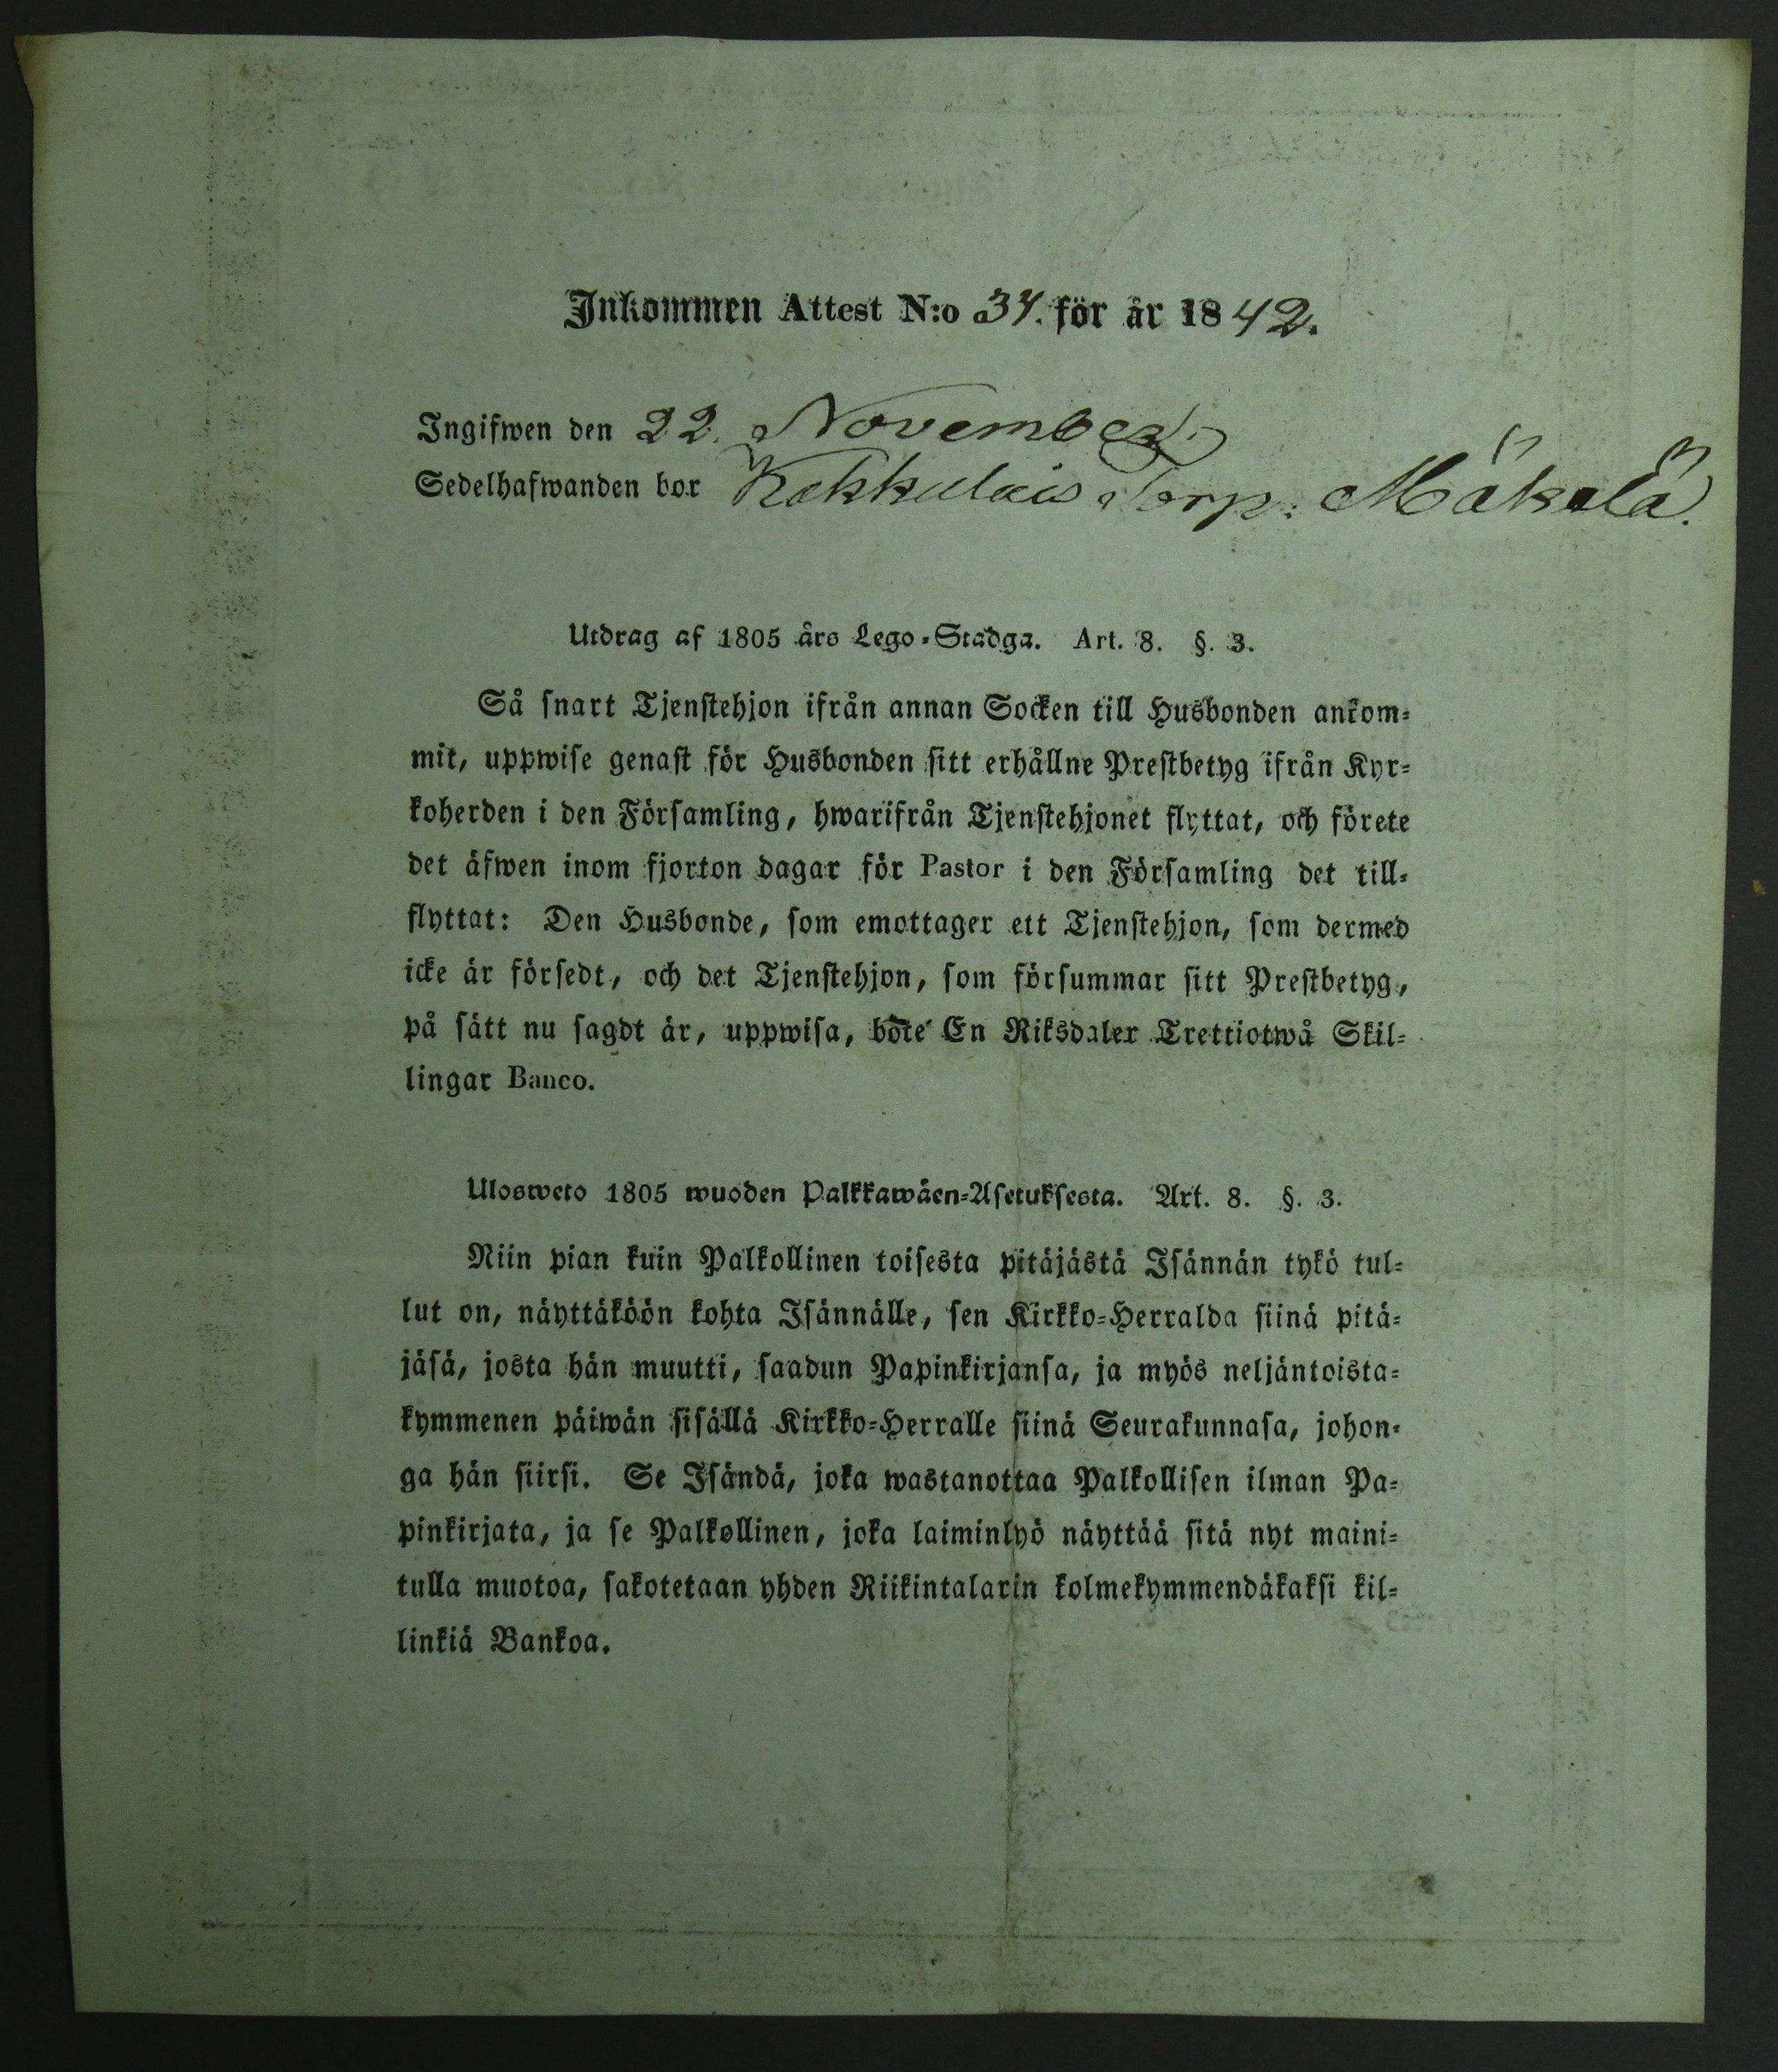 Inkommen Attest N:o 34. för år 1842.
Ingifwen den 22. November.
Sedelhafwanden bor Kekkulais Torp: Mäkelä.
Utdrag af 1805 års Lego-Stadga. Art. 8. §. 3.
Så snart Tjenstehjon ifrån annan Socken till Husbonden ankom-
mit, uppwise genast för Husbonden sitt erhållne Prestbetyg ifrån Kyr-
koherden i den Församling, hwarifrån Tjenstehjonet flyttat, och förete
det äfwen inom fjorton dagar för Pastor i den Församling det till-
flyttat: Den Husbonde, som emottager ett Tjenstehjon, som dermed
icke är försedt, och det Tjenstehjon, som försummar sitt Prestbetyg,
på sätt nu sagdt är, uppwisa, böte En Riksdaler Trettiotwå Skil-
lingar Banco.
Ulosweto 1805 wuoden Palkkawäen-Asetuksesta. Art. 8. §. 3.
Niin pian kuin Palkollinen toisesta pitäjästä Isännän tykö tul-
lut on, näyttäköön kohta Isännälle, sen Kirkko-Herralda siinä pitä-
jäsä, josta hän muutti, saadun Papinkirjansa, ja myös neljäntoista-
kymmenen päiwän sisällä Kirkko-Herralle siinä Seurakunnasa, johon-
ga hän siirsi. Se Isändä, joka wastanottaa Palkollisen ilman Pa-
pinkirjata, ja se Palkollinen, joka laiminlyö näyttää sitä nyt maini-
tulla muotoa, sakotetaan yhden Riikintalarin kolmekymmendäkaksi kil-
linkiä Bankoa.